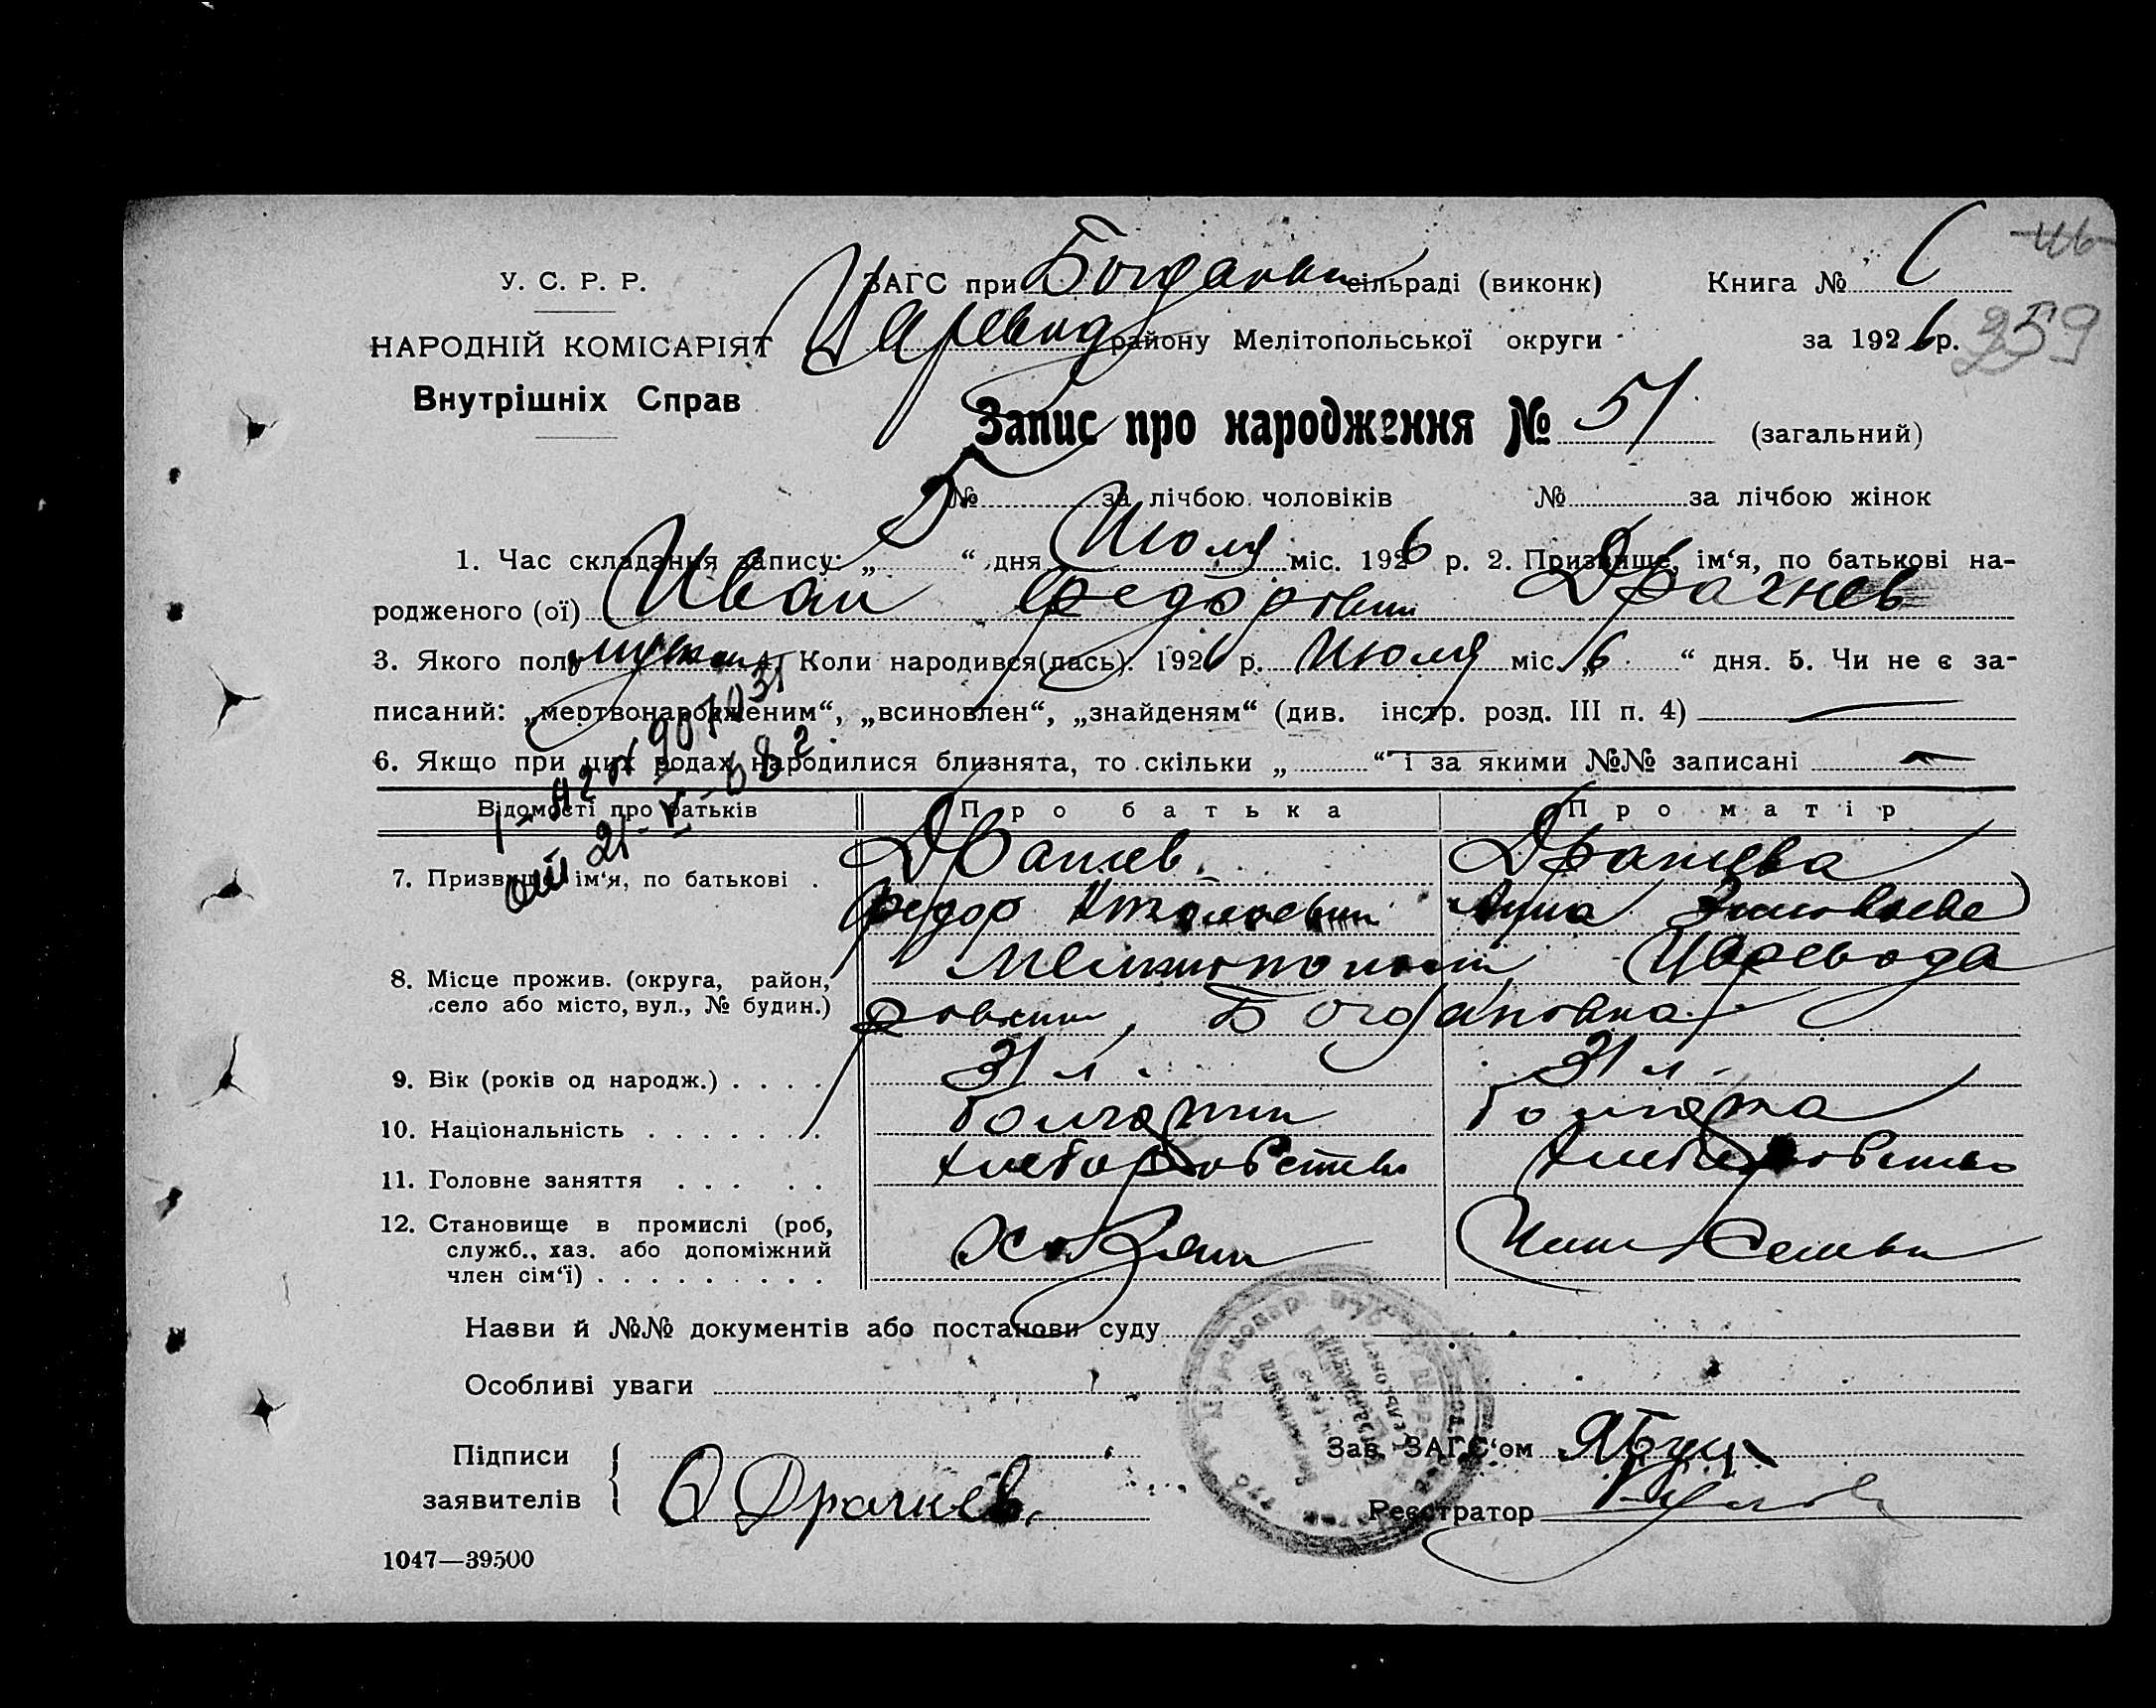 У. С. Р. Р.
НАРОДНІЙ КОМІСАРІЯТ
Внутрішніх Справ
ЗАГС при Богдановк сільраді (виконк) Книга №
Царевод району Мелітопольської округи за 1926 р. 259
Запис про народження № 51 (загальний)
№ за лічбою чоловіків № за лічбою жінок
1. Час складання запису: „ “ дня Июля міс. 1926 р. 2. Призвище, ім‘я, по батькові на-
родженого (ої) Иван Федорович Драгнев
3. Якого полу мужск 4. Коли народився(лась): 1926 р. Июля міс. „6 “ дня. 5. Чи не є за-
писаний: „мертвонародженим“, „всиновлен“, „знайденям“ (див. інстр. розд. III п. 4)
6. Якщо при цих родах народилися близнята, то скільки „ “ і за якими №№ записані
Відомості про батьків Про батька Про матір
7. Призвище, ім‘я, по батькові . Драгнев Драгнева
Федор Анна
8. Місце прожив. (округа, район, Мелитополь Царевода
село або місто, вул., № будин.) ровский, Богдановка
9. Вік (років од народж.) . . . . 31 л. 31 л.
10. Національність . . . . . . . Болгарин Болгарка
11. Головне заняття . . . . . Хлеборобство Хлеборобство
12. Становище в промислі (роб, Хозяин Член Семьи
служб., хаз. або допоміжний
член сім‘ї) . . . . . . . . .
Назви й №№ документів або постанови суду
Особливі уваги
Підписи
заявителів Ф Драгнев.
Зав. ЗАГС‘ом
Реєстратор
1047—39500